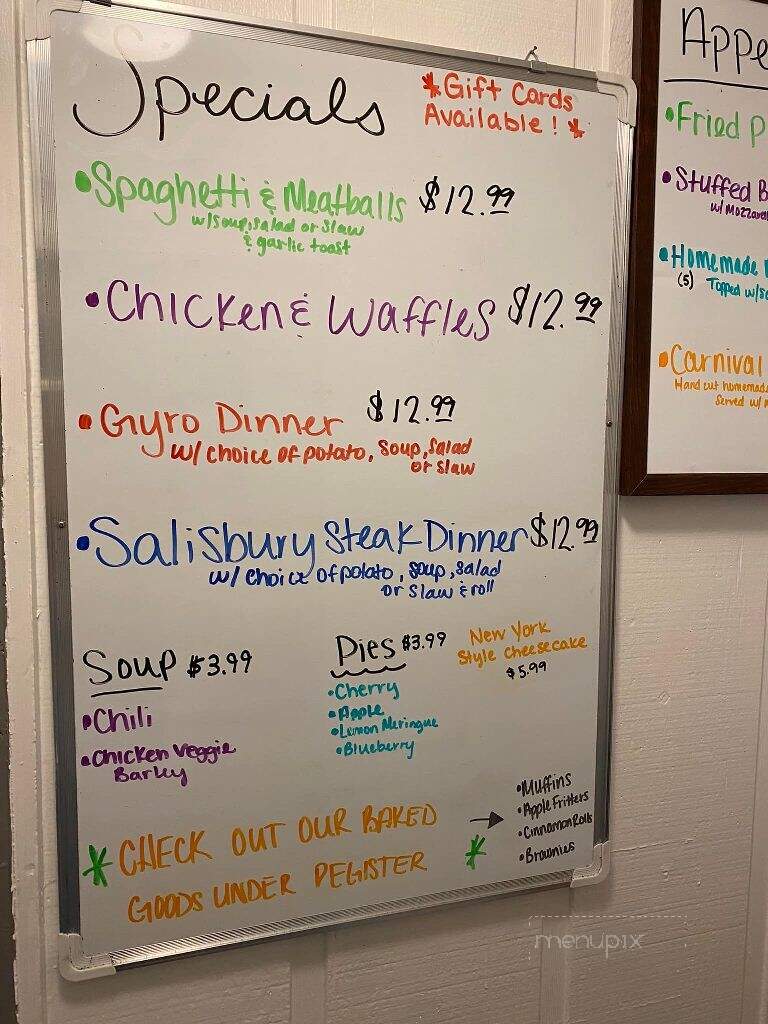 Specials
*Gift Cards
Available! *
•Spaghetti & Meatballs $12.99
w/soup, salad or slaw
& garlic toast
•Chicken & Waffles $12.99
•Gyro Dinner $12.99
w/ choice of potato, soup, salad
or slaw
•Salisbury Steak Dinner $12.99
w/ choice of potato, soup, salad
or slaw & roll
Soup $3.99
•Chili
•Chicken Veggie
Barley
Pies $3.99
•Cherry
•Apple
•Lemon Meringue
•Blueberry
New York
Style Cheesecake
$5.99
* CHECK OUT OUR BAKED
GOODS UNDER REGISTER *
→
•Muffins
•Apple Fritters
•Cinnamon Rolls
•Brownies
Appe
•Fried P
•Stuffed B
w/ Mozzarel
•Homemade
(5) Topped w/s
•Carnival
Hand cut homemade
Served w/
menupix